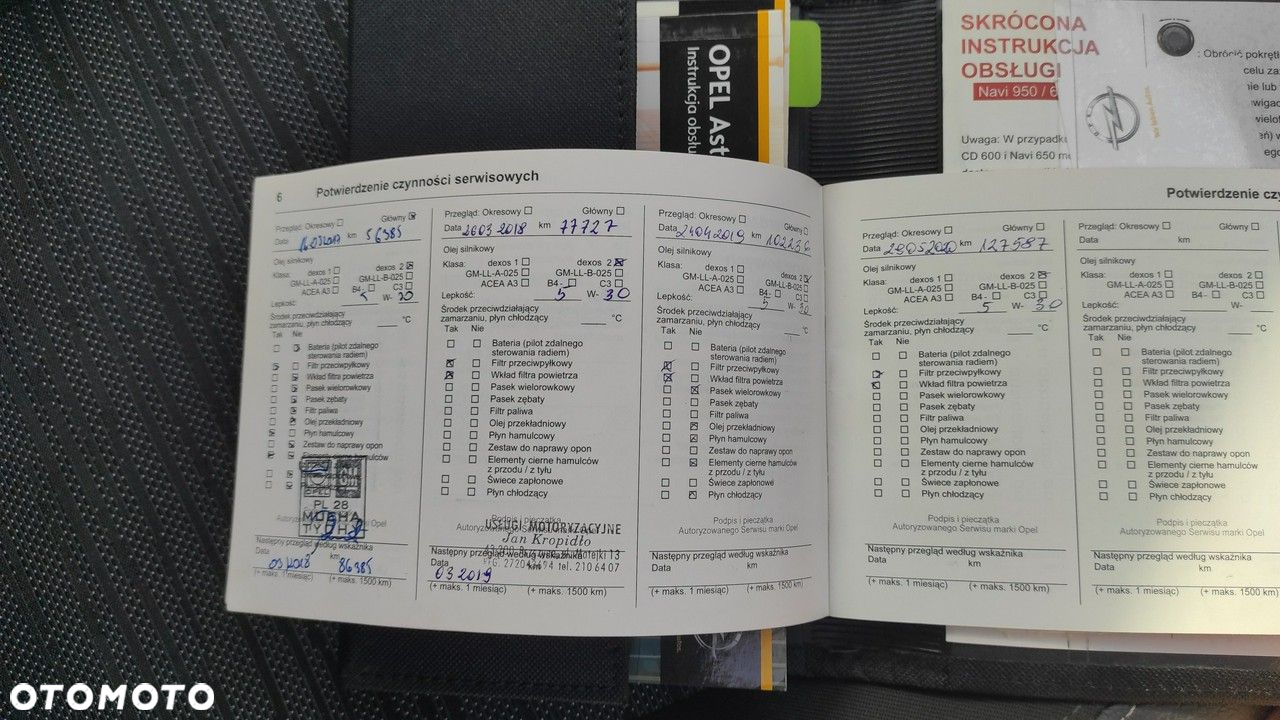 OPEL Ast
Instrukcja obsłu
SKRÓCONA
INSTRUKCJA
OBSŁUGI
Navi 950 / 6
Uwaga: W przypadku
CD 600 i Navi 650
: Obrócić pokrętł
celu za
6 Potwierdzenie czynności serwisowych
Przegląd: Okresowy Główny
Data km 56985
Olej silnikowy
Klasa: dexos 1 dexos 2
GM-LL-A-025 GM-LL-B-025
ACEA A3 B4- C3
Lepkość: 5 W- 30
Środek przeciwdziałający
zamarzaniu, płyn chłodzący °C
Tak Nie
Bateria (pilot zdalnego
sterowania radiem)
Filtr przeciwpyłkowy
Wkład filtra powietrza
Pasek wielorowkowy
Pasek zębaty
Filtr paliwa
Olej przekładniowy
Płyn hamulcowy
Zestaw do naprawy opon
Elementy cierne hamulców
OPEL
PL 28
Następny przegląd według wskaźnika
Data km 86985
(+ maks. 1 miesiąc) (+ maks. 1500 km)
Przegląd: Okresowy Główny
Data 26 03 2018 km 77727
Olej silnikowy
Klasa: dexos 1 dexos 2
GM-LL-A-025 GM-LL-B-025
ACEA A3 B4- C3
Lepkość: 5 W- 30
Środek przeciwdziałający
zamarzaniu, płyn chłodzący °C
Tak Nie
Bateria (pilot zdalnego
sterowania radiem)
Filtr przeciwpyłkowy
Wkład filtra powietrza
Pasek wielorowkowy
Pasek zębaty
Filtr paliwa
Olej przekładniowy
Płyn hamulcowy
Zestaw do naprawy opon
Elementy cierne hamulców
z przodu / z tyłu
Świece zapłonowe
Płyn chłodzący
Podpis i pieczątka
USŁUGI MOTORYZACYJNE
Jan Kropidło
tel. 210 64 07
Następny przegląd według wskaźnika
Data 03 2019 km
(+ maks. 1 miesiąc) (+ maks. 1500 km)
Przegląd: Okresowy Główny
Data 24 04 2019 km 102256
Olej silnikowy
Klasa: dexos 1 dexos 2
GM-LL-A-025 GM-LL-B-025
ACEA A3 B4- C3
Lepkość: 5 W- 30
Środek przeciwdziałający
zamarzaniu, płyn chłodzący °C
Tak Nie
Bateria (pilot zdalnego
sterowania radiem)
Filtr przeciwpyłkowy
Wkład filtra powietrza
Pasek wielorowkowy
Pasek zębaty
Filtr paliwa
Olej przekładniowy
Płyn hamulcowy
Zestaw do naprawy opon
Elementy cierne hamulców
z przodu / z tyłu
Świece zapłonowe
Płyn chłodzący
Podpis i pieczątka
Autoryzowanego Serwisu marki Opel
Następny przegląd według wskaźnika
Data km
(+ maks. 1 miesiąc) (+ maks. 1500 km)
Potwierdzenie cz
Przegląd: Okresowy Główny
Data 29 05 2020 km 127587
Olej silnikowy
Klasa: dexos 1 dexos 2
GM-LL-A-025 GM-LL-B-025
ACEA A3 B4- C3
Lepkość: 5 W- 30
Środek przeciwdziałający
zamarzaniu, płyn chłodzący °C
Tak Nie
Bateria (pilot zdalnego
sterowania radiem)
Filtr przeciwpyłkowy
Wkład filtra powietrza
Pasek wielorowkowy
Pasek zębaty
Filtr paliwa
Olej przekładniowy
Płyn hamulcowy
Zestaw do naprawy opon
Elementy cierne hamulców
z przodu / z tyłu
Świece zapłonowe
Płyn chłodzący
Podpis i pieczątka
Autoryzowanego Serwisu marki Opel
Następny przegląd według wskaźnika
Data km
(+ maks. 1 miesiąc) (+ maks. 1500 km)
Przegląd: Okresowy Główny
Data km
Olej silnikowy
Klasa: dexos 1 dexos 2
GM-LL-A-025 GM-LL-B
ACEA A3 B4- C3
Lepkość: W-
Środek przeciwdziałający
zamarzaniu, płyn chłodzący
Tak Nie
Bateria (pilot zdalnego
sterowania radiem)
Filtr przeciwpyłkowy
Wkład filtra powietrza
Pasek wielorowkowy
Pasek zębaty
Filtr paliwa
Olej przekładniowy
Płyn hamulcowy
Zestaw do naprawy opon
Elementy cierne hamulców
z przodu / z tyłu
Świece zapłonowe
Płyn chłodzący
Podpis i pieczątka
Autoryzowanego Serwisu marki
Następny przegląd według wskaźnika
Data km
(+ maks. 1 miesiąc) (+ maks. 1500
OTOMOTO